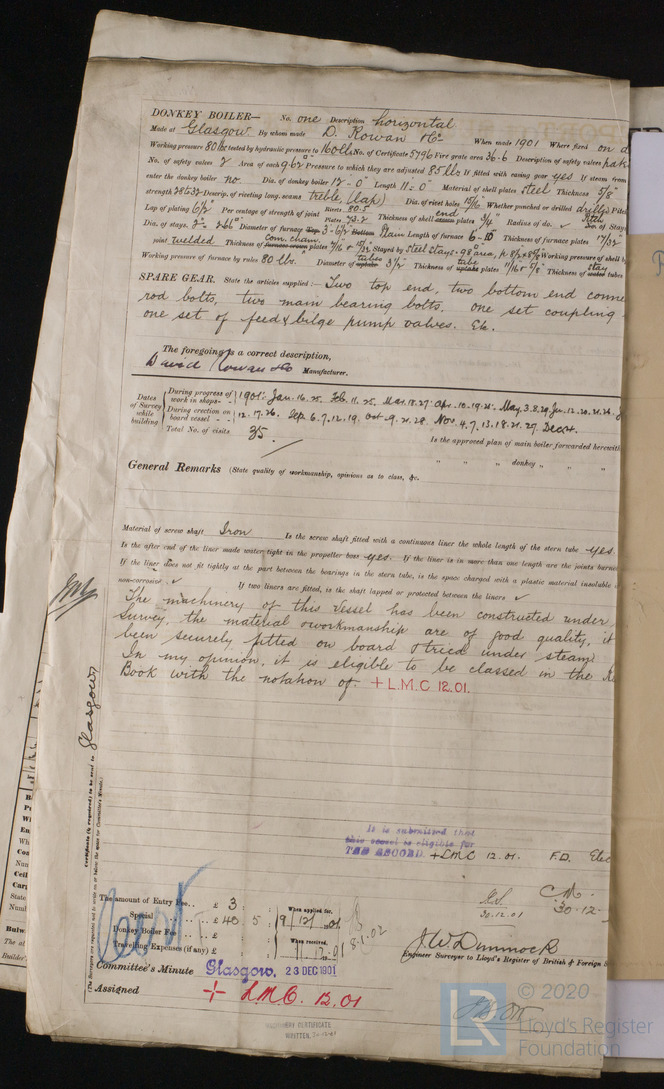 DONKEY BOILER— No. one Description horizontal
Made at Glasgow By whom made D. Rowan & Co When made 1901 Where fixed on d
Working pressure 80 lb tested by hydraulic pressure to 160 lb No. of Certificate 5796 Fire grate area 36.6 Description of safety valves
No. of safety valves 2 Area of each 9.62 Pressure to which they are adjusted 85 lb If fitted with casing gear yes If steam from
enter the donkey boiler no Dia. of donkey boiler 12'-0" Length 11'-0" Material of shell plates steel Thickness 5/8"
strength 28 & 32 Descrip. of riveting long. seams treble (lap) Dia. of rivet holes 15/16 Whether punched or drilled drilled Pitch
Lap of plating 6 1/2" Per centage of strength of joint Rivets 80.5 Plates 73.2 Thickness of shell end plates 3/4" Radius of do. ✓ No. of Stays
Dia. of stays. Diameter of furnace 3'-6 1/2" Bottom Plain Length of furnace 6-10 Thickness of furnace plates 17/32
joint welded Thickness of com. cham. plates Stayed by Steel stays Working pressure of shell b
Working pressure of furnace by rules 80 lbs. Diameter of tubes 3 1/2 Thickness of tube plates 11/16 & 7/8" Thickness of stay tubes
SPARE GEAR. State the articles supplied:— Two top end, two bottom end conne
rod bolts, two main bearing bolts, one set coupling
one set of feed & bilge pump valves. Etc.
The foregoing is a correct description,
David Rowan & Co Manufacturer.
Dates of Survey while building
During progress of work in shops— 1901: Jan. 16. 25. Feb. 11. 25. Mar. 18. 27. Apr. 10. 19. 25. May. 3. 8. 29. Jun. 12. 20. 21. 24.
During erection on board vessel— 12. 17. 26. Sep. 6. 7. 12. 19. Oct. 9. 21. 28. Nov. 4. 7. 13. 18. 21. 27. Dec. 4.
Total No. of visits 35.
Is the approved plan of main boiler forwarded herewith
" " " donkey " " "
General Remarks (State quality of workmanship, opinions as to class, &c.
Material of screw shaft Iron Is the screw shaft fitted with a continuous liner the whole length of the stern tube yes.
Is the after end of the liner made water tight in the propeller boss yes. If the liner is in more than one length are the joints burned
If the liner does not fit tightly at the part between the bearings in the stern tube, is the space charged with a plastic material insoluble
non-corrosive ✓ If two liners are fitted, is the shaft lapped or protected between the liners ✓
The machinery of this vessel has been constructed under
survey, the material & workmanship are of good quality, it
been securely fitted on board & tried under steam
In my opinion, it is eligible to be classed in the
Book with the notation of. + L.M.C 12.01.
Certificate (if required) to be sent to Glasgow
(The Surveyors are requested not to write on or below the space for Committee's Minute.)
It is submitted that
this vessel is eligible for
THE RECORD. + LMC 12.01. F.D. Elec
30.12.01
30.12
The amount of Entry Fee.. £ 3 : : When applied for,
Special £ 40 : 5 : 19/12/1901
Donkey Boiler Fee £ : : When received,
Travelling Expenses (if any) £ : :
8.1.02
J. W. Dimmock
Engineer Surveyor to Lloyd's Register of British & Foreign S
Committee's Minute Glasgow. 23 DEC 1901
Assigned + L.M.C. 12.01
MACHINERY CERTIFICATE
WRITTEN.
© 2020
Lloyd's Register
Foundation
LR